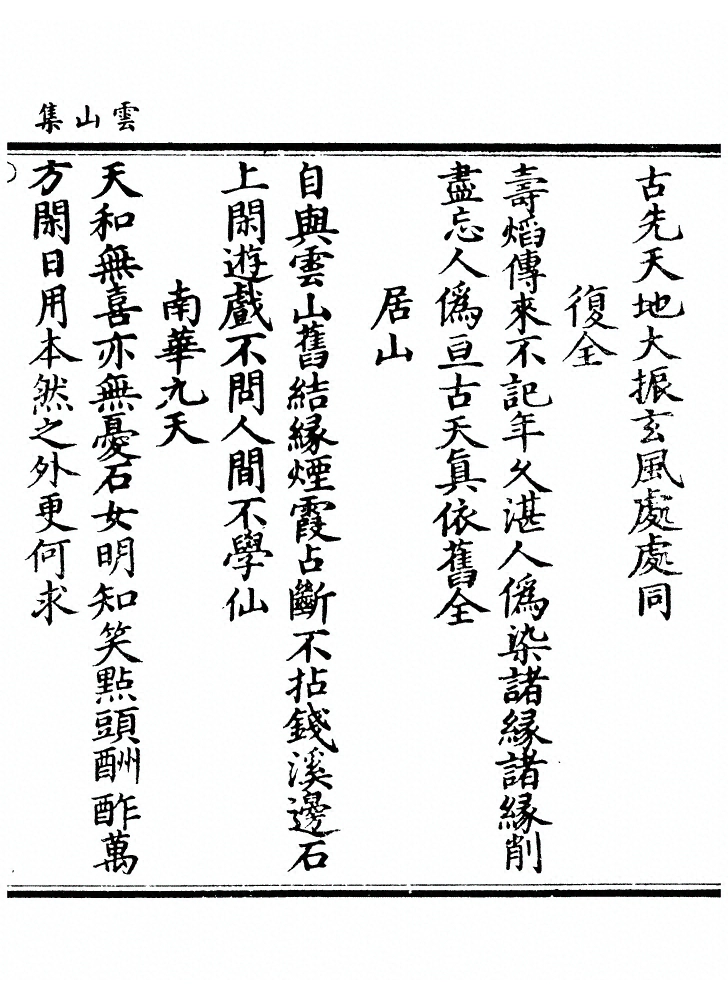 雲山集
古先天地大振玄風處處同
復全
壽熖傳來不記年久湛人僞染諸縁諸縁削
盡忘人僞亘古天眞依舊全
居山
自與雲山舊結縁煙霞占斷不拈錢溪邊石
上閑遊戲不問人間不學仙
南華九天
天和無喜亦無憂石女明知笑點頭酬酢萬
方閑日用本然之外更何求